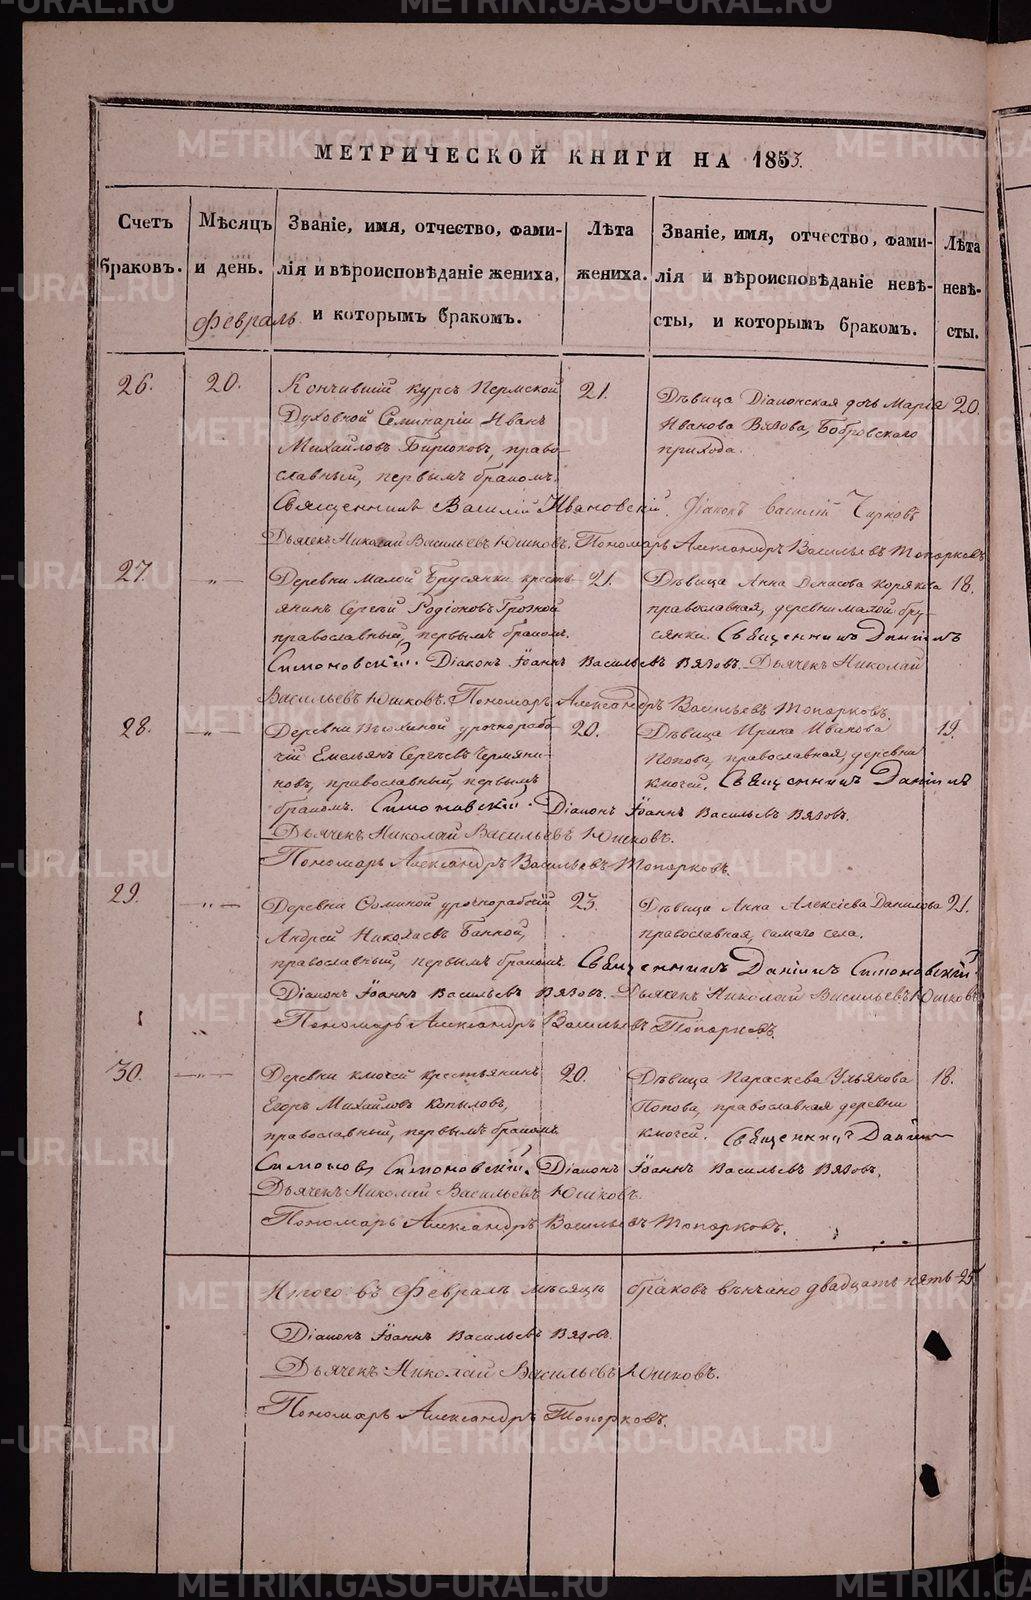 METRIKI.GASO-URAL.RU
МЕТРИЧЕСКОЙ КНИГИ НА 1855.
Счетъ браковъ.
Мѣсяцъ и день.
Февраль
Званіе, имя, отчество, фами-
лія и вѣроисповѣданіе жениха,
и которымъ бракомъ.
Лѣта
жениха.
Званіе, имя, отчество, фами-
лія и вѣроисповѣданіе невѣ-
сты, и которымъ бракомъ.
Лѣта
невѣ-
сты.
26.
20.
Кончившій курсъ Пермской
Духовной Семинаріи Иванъ
Михайловъ Бирюковъ, право-
славный, первымъ бракомъ.
21.
Дѣвица Діаконская дочь Марія
Иванова Вязова, Бобровскаго
прихода.
20.
Священникъ Василій Ивановскій. Діаконъ Василій Чирковъ
Дьячекъ Николай Васильевъ Юшковъ. Пономарь Александръ Васильевъ Топорковъ
27.
— „ —
Деревни Малой Брусянки кресть-
янинъ Сергѣй Родіоновъ
православный, первымъ бракомъ.
21.
Дѣвица Анна Денисова Корякова
православная, деревни малой бру-
сянки. Священникъ Даніилъ
18.
Симоновскій. Діаконъ Іоаннъ Васильевъ Вязовъ. Дьячекъ Николай
Васильевъ Юшковъ. Пономарь Александръ Васильевъ Топорковъ.
28.
— „ —
Деревни урочнорабо-
чій Емельянъ Сергѣевъ Чермяни-
новъ, православный, первымъ
бракомъ.
20.
Дѣвица Ирина Иванова
Попова, православная, деревни
ключей. Священникъ Даніилъ
19.
Симоновскій. Діаконъ Іоаннъ Васильевъ Вязовъ.
Дьячекъ Николай Васильевъ Юшковъ.
Пономарь Александръ Васильевъ Топорковъ.
29.
— „ —
Деревни урочнорабочій
Андрей Николаевъ Банной,
православный, первымъ бракомъ.
23.
Дѣвица Анна Алексіева Данилова
православная, самаго села.
21.
Священникъ Даніилъ Симоновскій.
Діаконъ Іоаннъ Васильевъ Вязовъ. Дьячекъ Николай Васильевъ Юшковъ
Пономарь Александръ Васильевъ Топорковъ.
30.
— „ —
Деревни ключей крестьянинъ
Егоръ Михайловъ Копыловъ,
православный, первымъ бракомъ.
20.
Дѣвица Параскева Ульянова
Попова, православная деревни
ключей. Священникъ Даніилъ
18.
Симоновъ Симоновскій. Діаконъ Іоаннъ Васильевъ Вязовъ.
Дьячекъ Николай Васильевъ Юшковъ.
Пономарь Александръ Васильевъ Топорковъ.
Итого въ Февралѣ мѣсяцѣ браковъ вѣнчано двадцать пять 25
Діаконъ Іоаннъ Васильевъ Вязовъ.
Дьячекъ Николай Васильевъ Юшковъ.
Пономарь Александръ Топорковъ.